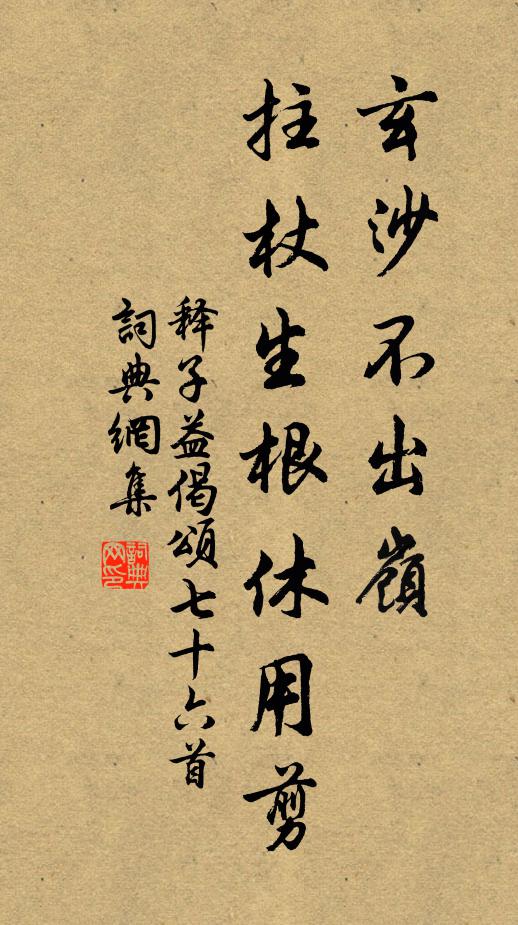 玄沙不出嶺
拄杖生根休用剪
释子益偈頌七十六首
詞典網集
詞典網印